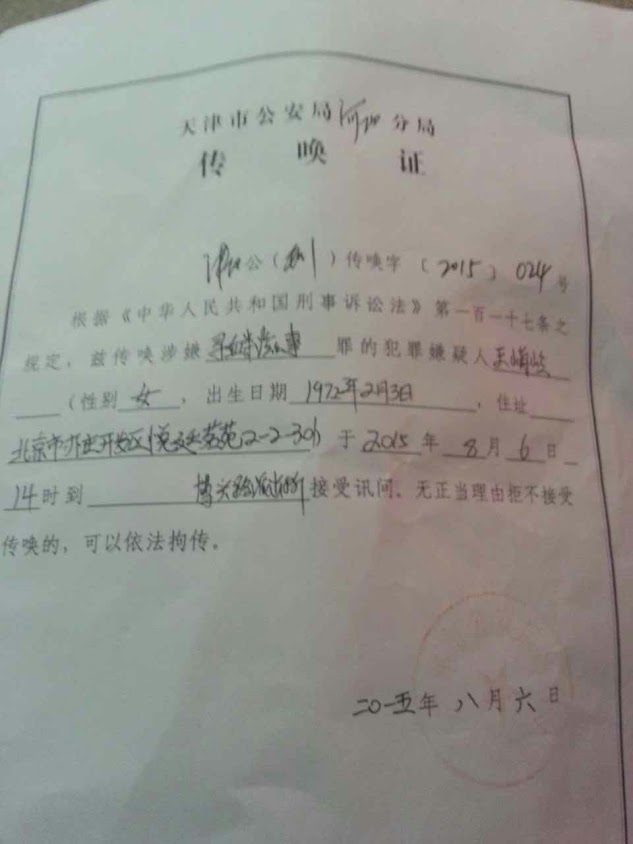 天津市公安局河北分局
传 唤 证
公（ ）传唤字（2015）024号
根据《中华人民共和国刑事诉讼法》第一百一十七条之
规定，兹传唤涉嫌寻衅滋事罪的犯罪嫌疑人王
（性别 女 ，出生日期 1972年2月3日 ，住址
北京市 开发区 2-2-301 于 2015 年 8 月 6 日
14时到 派出所接受讯问。无正当理由拒不接受
传唤的，可以依法拘传。
二〇一五年八月六日